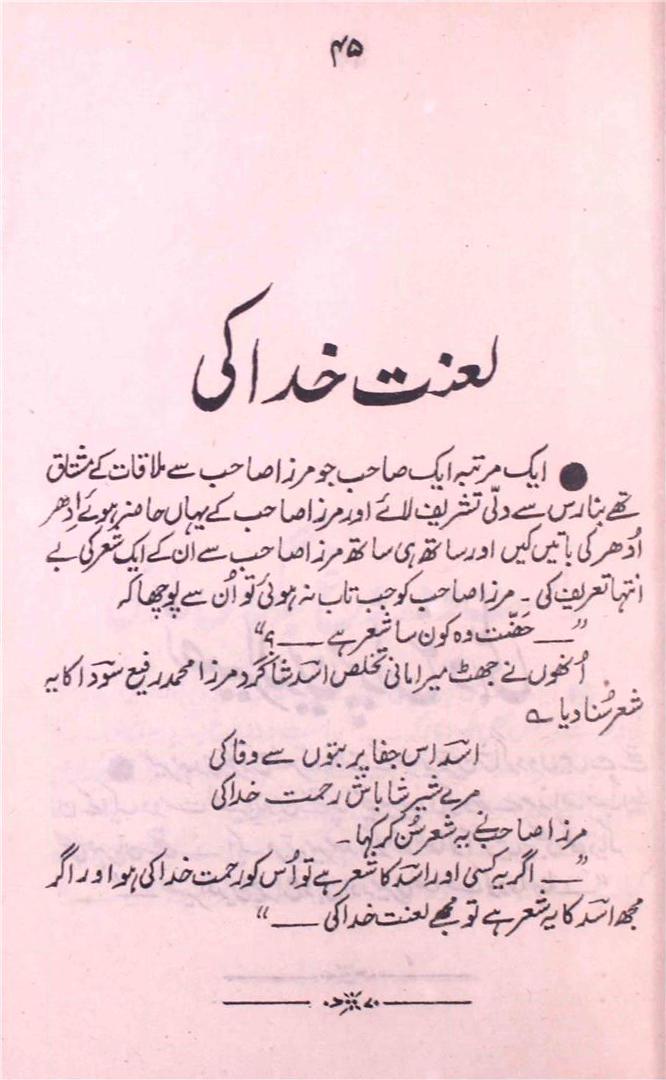 ۴۵
لعنت خدا کی
● ایک مرتبہ ایک صاحب جو مرزا صاحب سے ملاقات کے مشتاق
تھے بنارس سے دلّی تشریف لائے اور مرزا صاحب کے یہاں حاضر ہوئے اِدھر
اُدھر کی باتیں کیں اور ساتھ ہی ساتھ مرزا صاحب سے ان کے ایک شعر کی بے
انتہا تعریف کی ۔ مرزا صاحب کو جب تاب نہ ہوئی تو اُن سے پوچھا کہ
”— حضرت وہ کون سا شعر ہے — ؟“
اُنھوں نے جھٹ میر امانی تخلص اسدؔ شاگرد مرزا محمد رفیع سوؔدا کا یہ
شعر سُنا دیا ؎
اسدؔ اس جفا پر بتوں سے وفا کی
مرے شیر شاباش رحمت خدا کی
مرزا صاحب نے یہ شعر سُن کر کہا ۔
”— اگر یہ کسی اور اسدؔ کا شعر ہے تو اُس کو رحمت خدا کی ہو اور اگر
مجھ اسدؔ کا یہ شعر ہے تو مجھے لعنت خدا کی —“